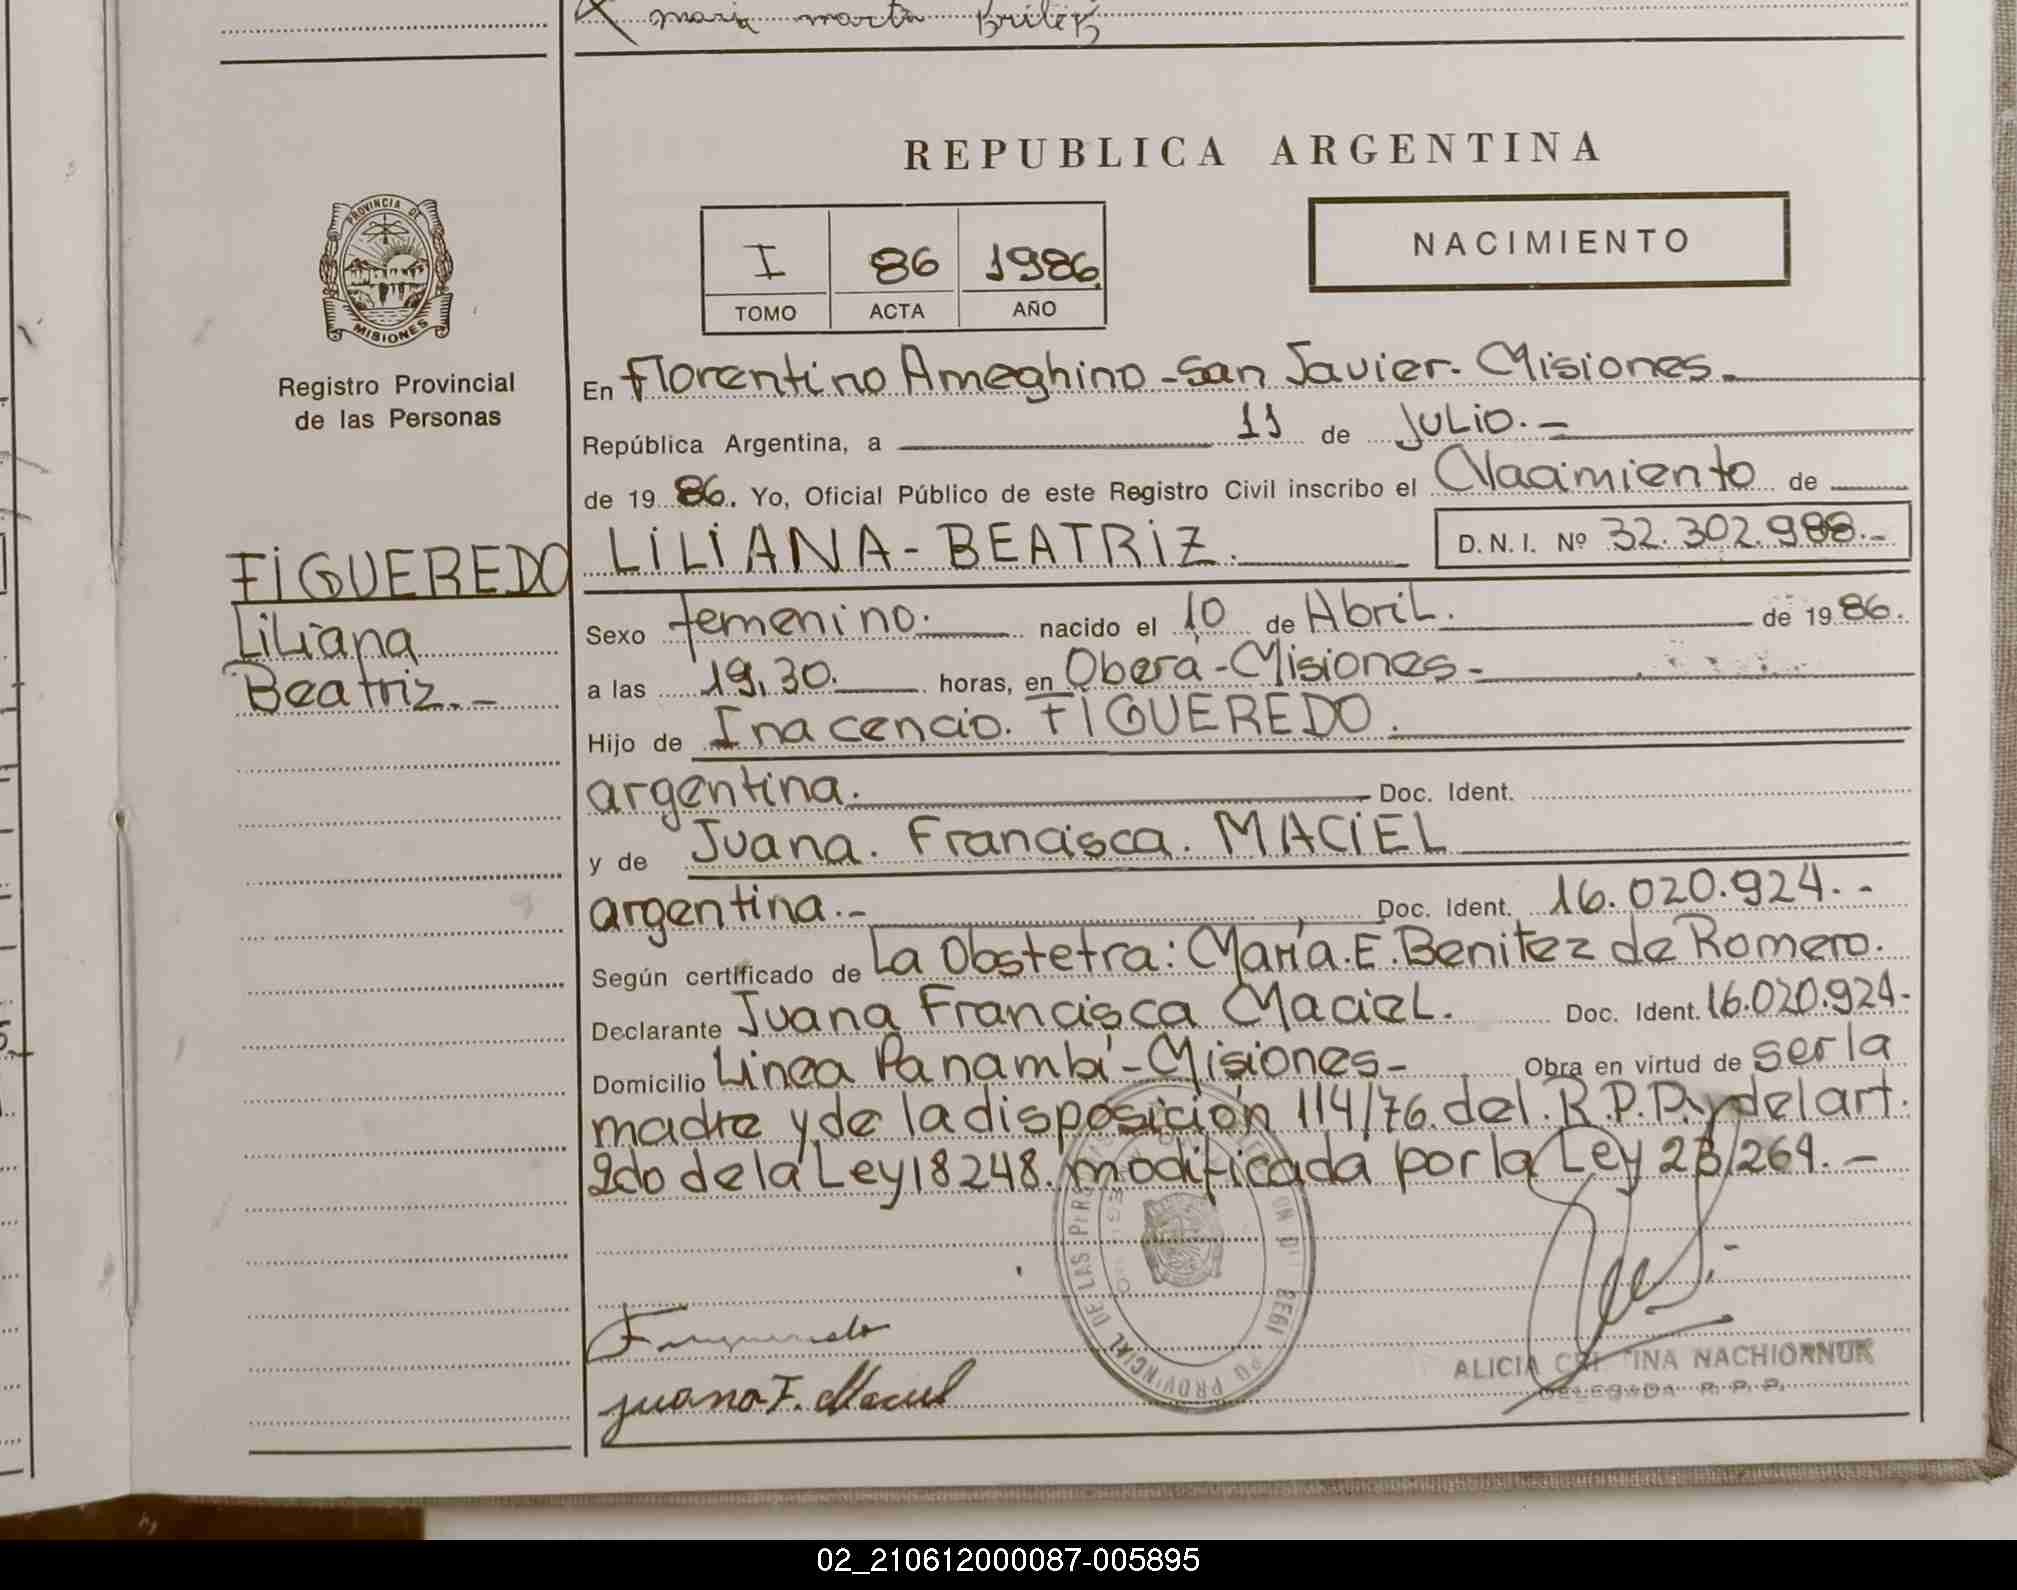 maria marta
REPUBLICA ARGENTINA
NACIMIENTO
I 86 1986
TOMO ACTA AÑO
PROVINCIA DE
MISIONES
Registro Provincial
de las Personas
En Florentino Ameghino - San Javier - Misiones
República Argentina, a 11 de JULIO.-
de 1986. Yo, Oficial Público de este Registro Civil inscribo el Nacimiento de
FIGUEREDO
Liliana
Beatriz.-
LILIANA - BEATRIZ. D. N. I. Nº 32.302.988.-
Sexo femenino. nacido el 10 de Abril. de 1986.
a las 19,30. horas, en Oberá - Misiones -
Hijo de Inacencio. FIGUEREDO.
argentina. Doc. Ident.
y de Juana. Francisca. MACIEL
argentina.- Doc. Ident. 16.020.924.-
Según certificado de La Obstetra: María. E. Benitez de Romero.
Declarante Juana Francisca Maciel. Doc. Ident. 16.020.924-
Domicilio Linea Panambí - Misiones - Obra en virtud de ser la
madre y de la disposición 114/76. del. R.P.P. y del art.
2do de la Ley 18248. modificada por la Ley 23/264.-
Figueredo
juana F. Maciel
PROVINCIAL DE LAS
ALICIA CRI TINA NACHIORNUK
DELEGADA R. P. P.
02_210612000087-005895